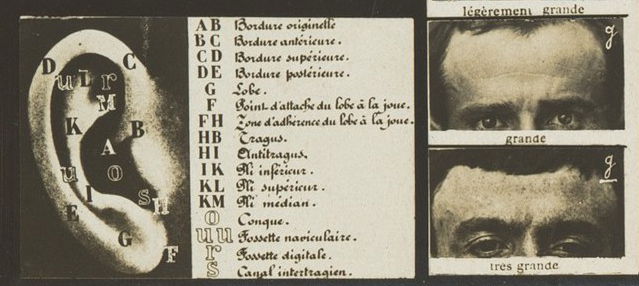 D
C
u
L
r
M
K
B
A
u
o
I
s
H
E
G
F
A B Bordure originelle
B C Bordure antérieure.
C D Bordure supérieure.
D E Bordure postérieure.
G Lobe.
F Point d'attache du lobe à la joue.
F H Zone d'adhérence du lobe à la joue.
H B Tragus.
H I Antitragus.
I K Pli inférieur.
K L Pli supérieur.
K M Pli médian.
O Conque.
u u Fossette naviculaire.
r Fossette digitale.
s Canal intertragien.
légèrement grande
g
grande
g
très grande